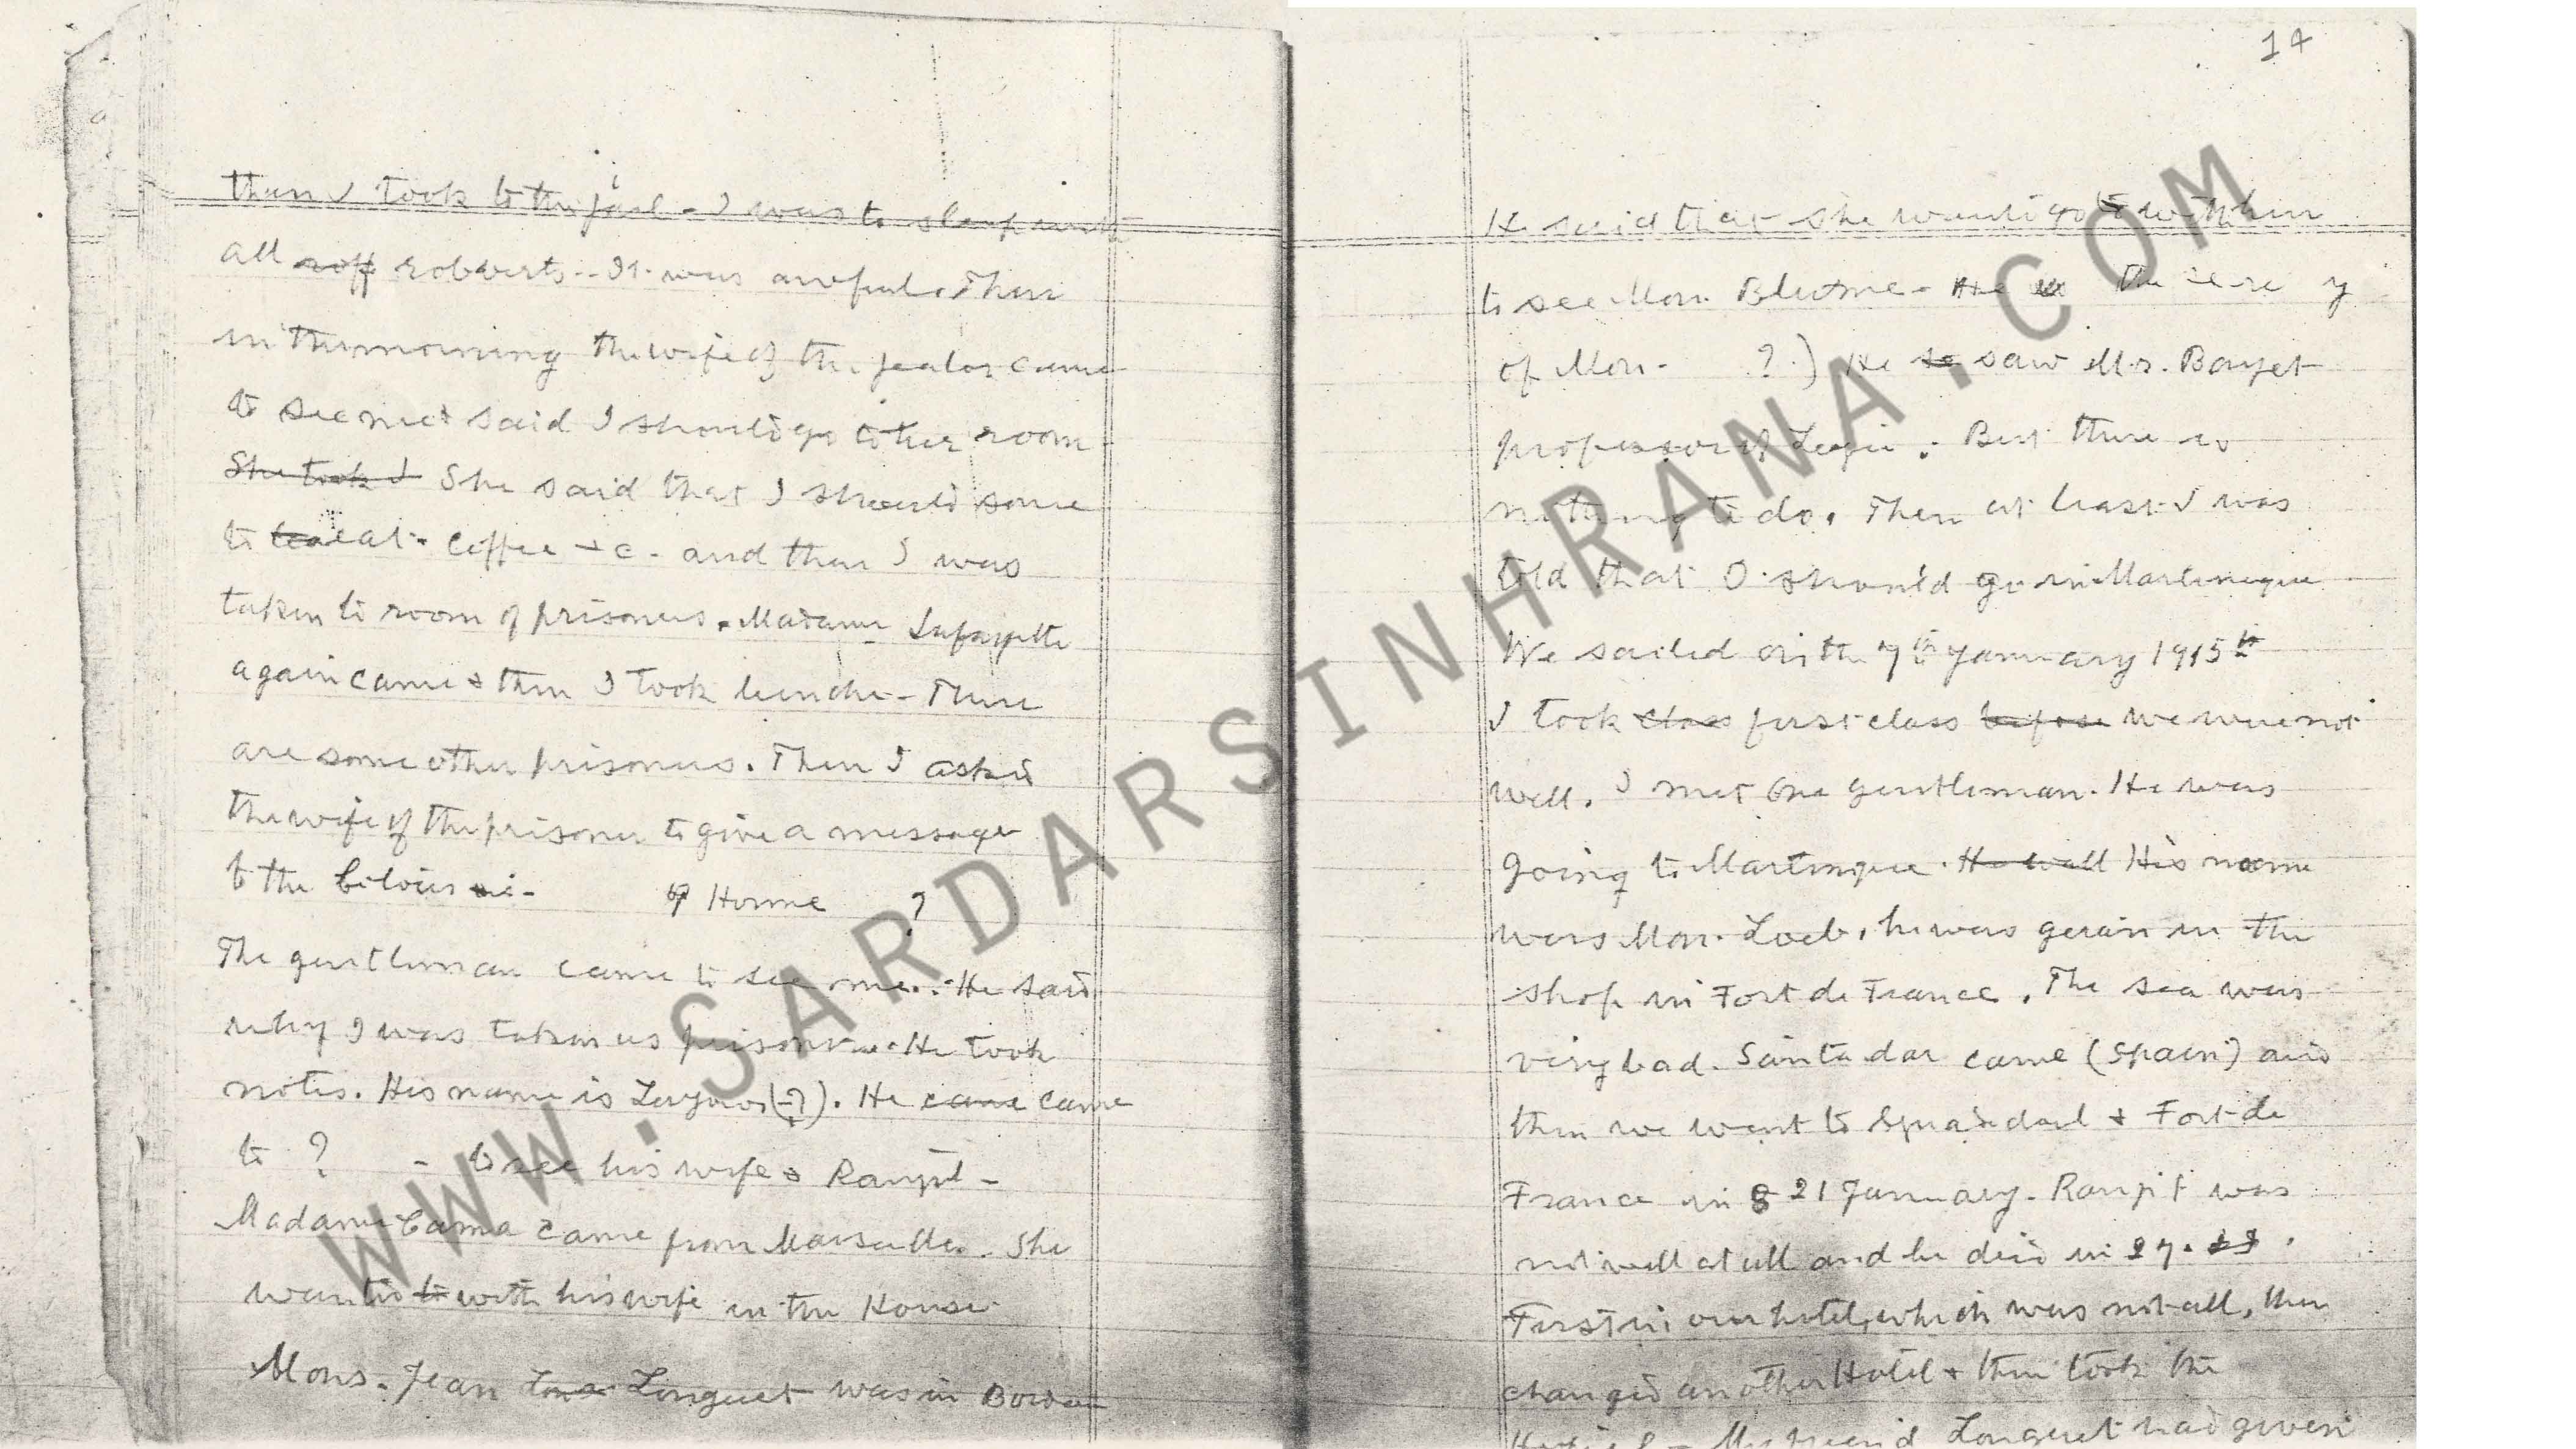 then I took to the jail - I was to sleep with
all robberts - It was awful. Then
in the morning the wife of the jealor came
to see me & said I should go to her room -
She took I She said that I should some
to eat. Coffee & c - and then I was
taken to room of prisoners. Madame Lafayette
again came & then I took lunche - There
are some other prisoners. Then I asked
the wife of the prisoner to give a message
to the of Home ?
The gentleman came to see me. He said
why I was taken as prisoner. He took
notes. His name is (-?). He came came
to ? - to see his wife & Ranjit -
Madame Cama came from Marseilles. She
wanted to with his wife in the House
Mons. Jean Longuet was in
14
He said that she would go to with him
to see Mon. - He the
of Mon - ?) He saw Mr. Bayet
professor of Logic. But there is
nothing to do. Then at least I was
told that I should go in Martinique
We sailed on the 7th January 1915th
I took class first class before we were not
well. I met one gentleman. He was
going to Martinique. He well His name
was Mon. Loeb, he was in the
shop in Fort de France. The sea was
very bad. Santadar came (Spain) and
then we went to & Fort de
France in 8 21 January. Ranjit was
not well at all and he died in 27.
First in our hotel, which was not all, then
changed another Hotel & then took the
- My friend Longuet had given
WWW.SARDARSINHRANA.COM